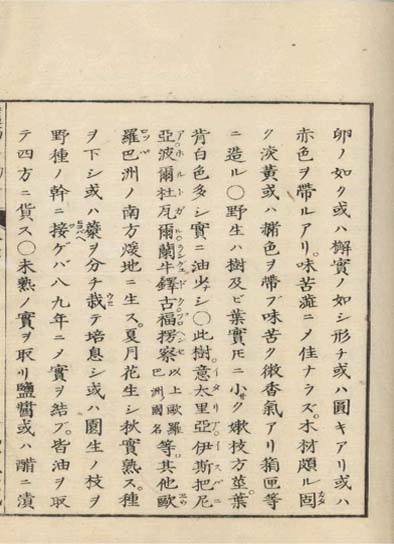 卵ノ如ク或ハ檞實ノ如シ形チ或ハ圓キアリ或ハ
赤色ヲ帶ルアリ。味苦澁ニメ佳ナラズ。木材頗ル固
ク淡黄或ハ褐色ヲ帶ブ味苦ク微香氣アリ箱匣等
ニ造ル〇野生ハ樹及ビ葉實𪜈ニ小ク嫩枝方莖葉
背白色多シ實ニ油少ナシ〇此樹。意太里亞伊斯把尼
亞波爾杜瓦爾蘭牛鐸古福拐察以上歐羅巴洲國名等。其他歐
羅巴洲ノ南方煖地ニ生ス。夏月花生シ秋實熟ス。種
ヲ下シ或ハ蘖ヲ分チ栽テ培息シ或ハ園生ノ枝ヲ
野種ノ幹ニ接ゲバ八九年ニメ實ヲ結ブ。皆油ヲ取
テ四方ニ貨ス〇未熟ノ實ヲ取リ鹽醬或ハ醋ニ漬